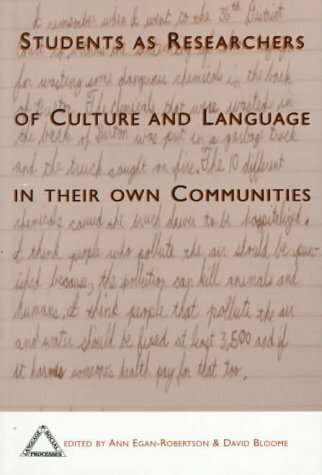 I remember when I went to the 36th District
STUDENTS AS RESEARCHERS
for wasting some dangerous chemical in the back
of CULTURE AND LANGUAGE
the back of was put in a garbage truck
and the truck caught on fire. The 10 different
IN THEIR OWN COMMUNITIES
chemicals caused the truck driver to be hospitalized.
I think people who pollute the air should be pun-
ished because, the pollution can kill animals and
humans. I think people that pollute the air
and water should be fined at least 3,500 and if
it harms someones health pay for that too.
LANGUAGE
SOCIAL
PROCESSES
EDITED BY ANN EGAN-ROBERTSON & DAVID BLOOME